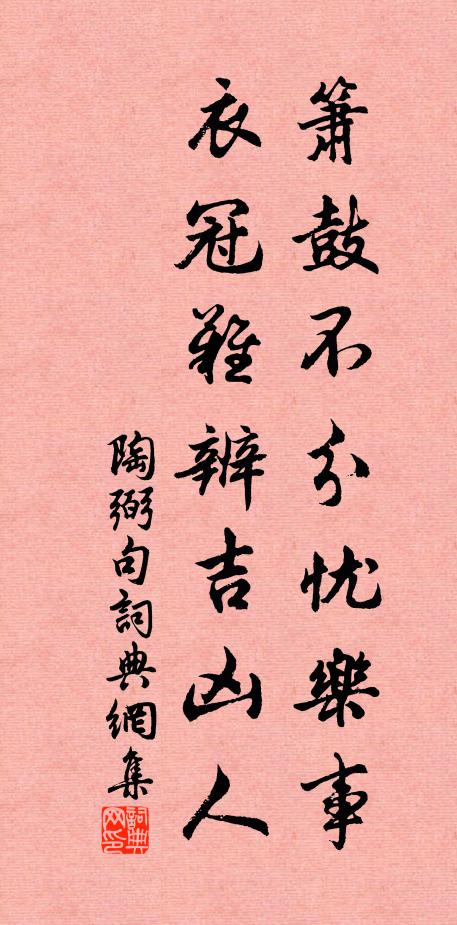 簫鼓不分忧樂事
衣冠難辨吉凶人
陶弼句詞典網集
詞典网印